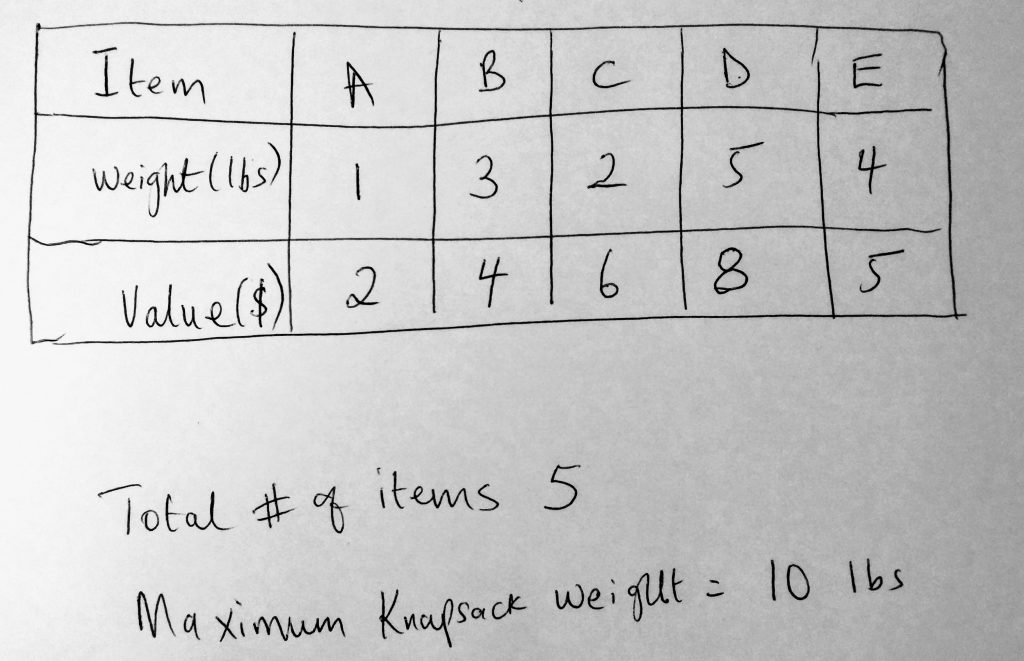 Item A B C D E
Weight(lbs) 1 3 2 5 4
Value($) 2 4 6 8 5
Total # of items 5
Maximum Knapsack weight = 10 lbs